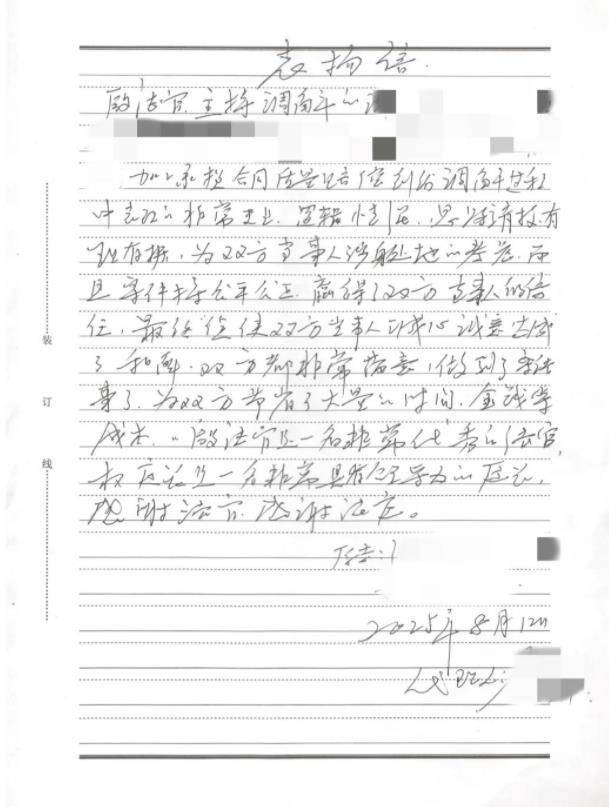 表扬信.
殷法官主持调解的
加工承揽合同质量赔偿纠纷调解过程
中表现的非常专业、逻辑情理、
理有据，为双方当事人设身处地的考虑，而
且案件特公平公正，赢得了双方当事人的信
任，最终促使双方当事人诚意达成
了和解，双方都非常满意，做到了案结
事了，为双方节省了大量的时间、金钱等
成本，殷法官是一名非常优秀的法官，
庭长是一名非常具有领导力的庭长，
感谢法官，感谢法庭。
原告：
2025年8月12日
代理人：
装
订
线